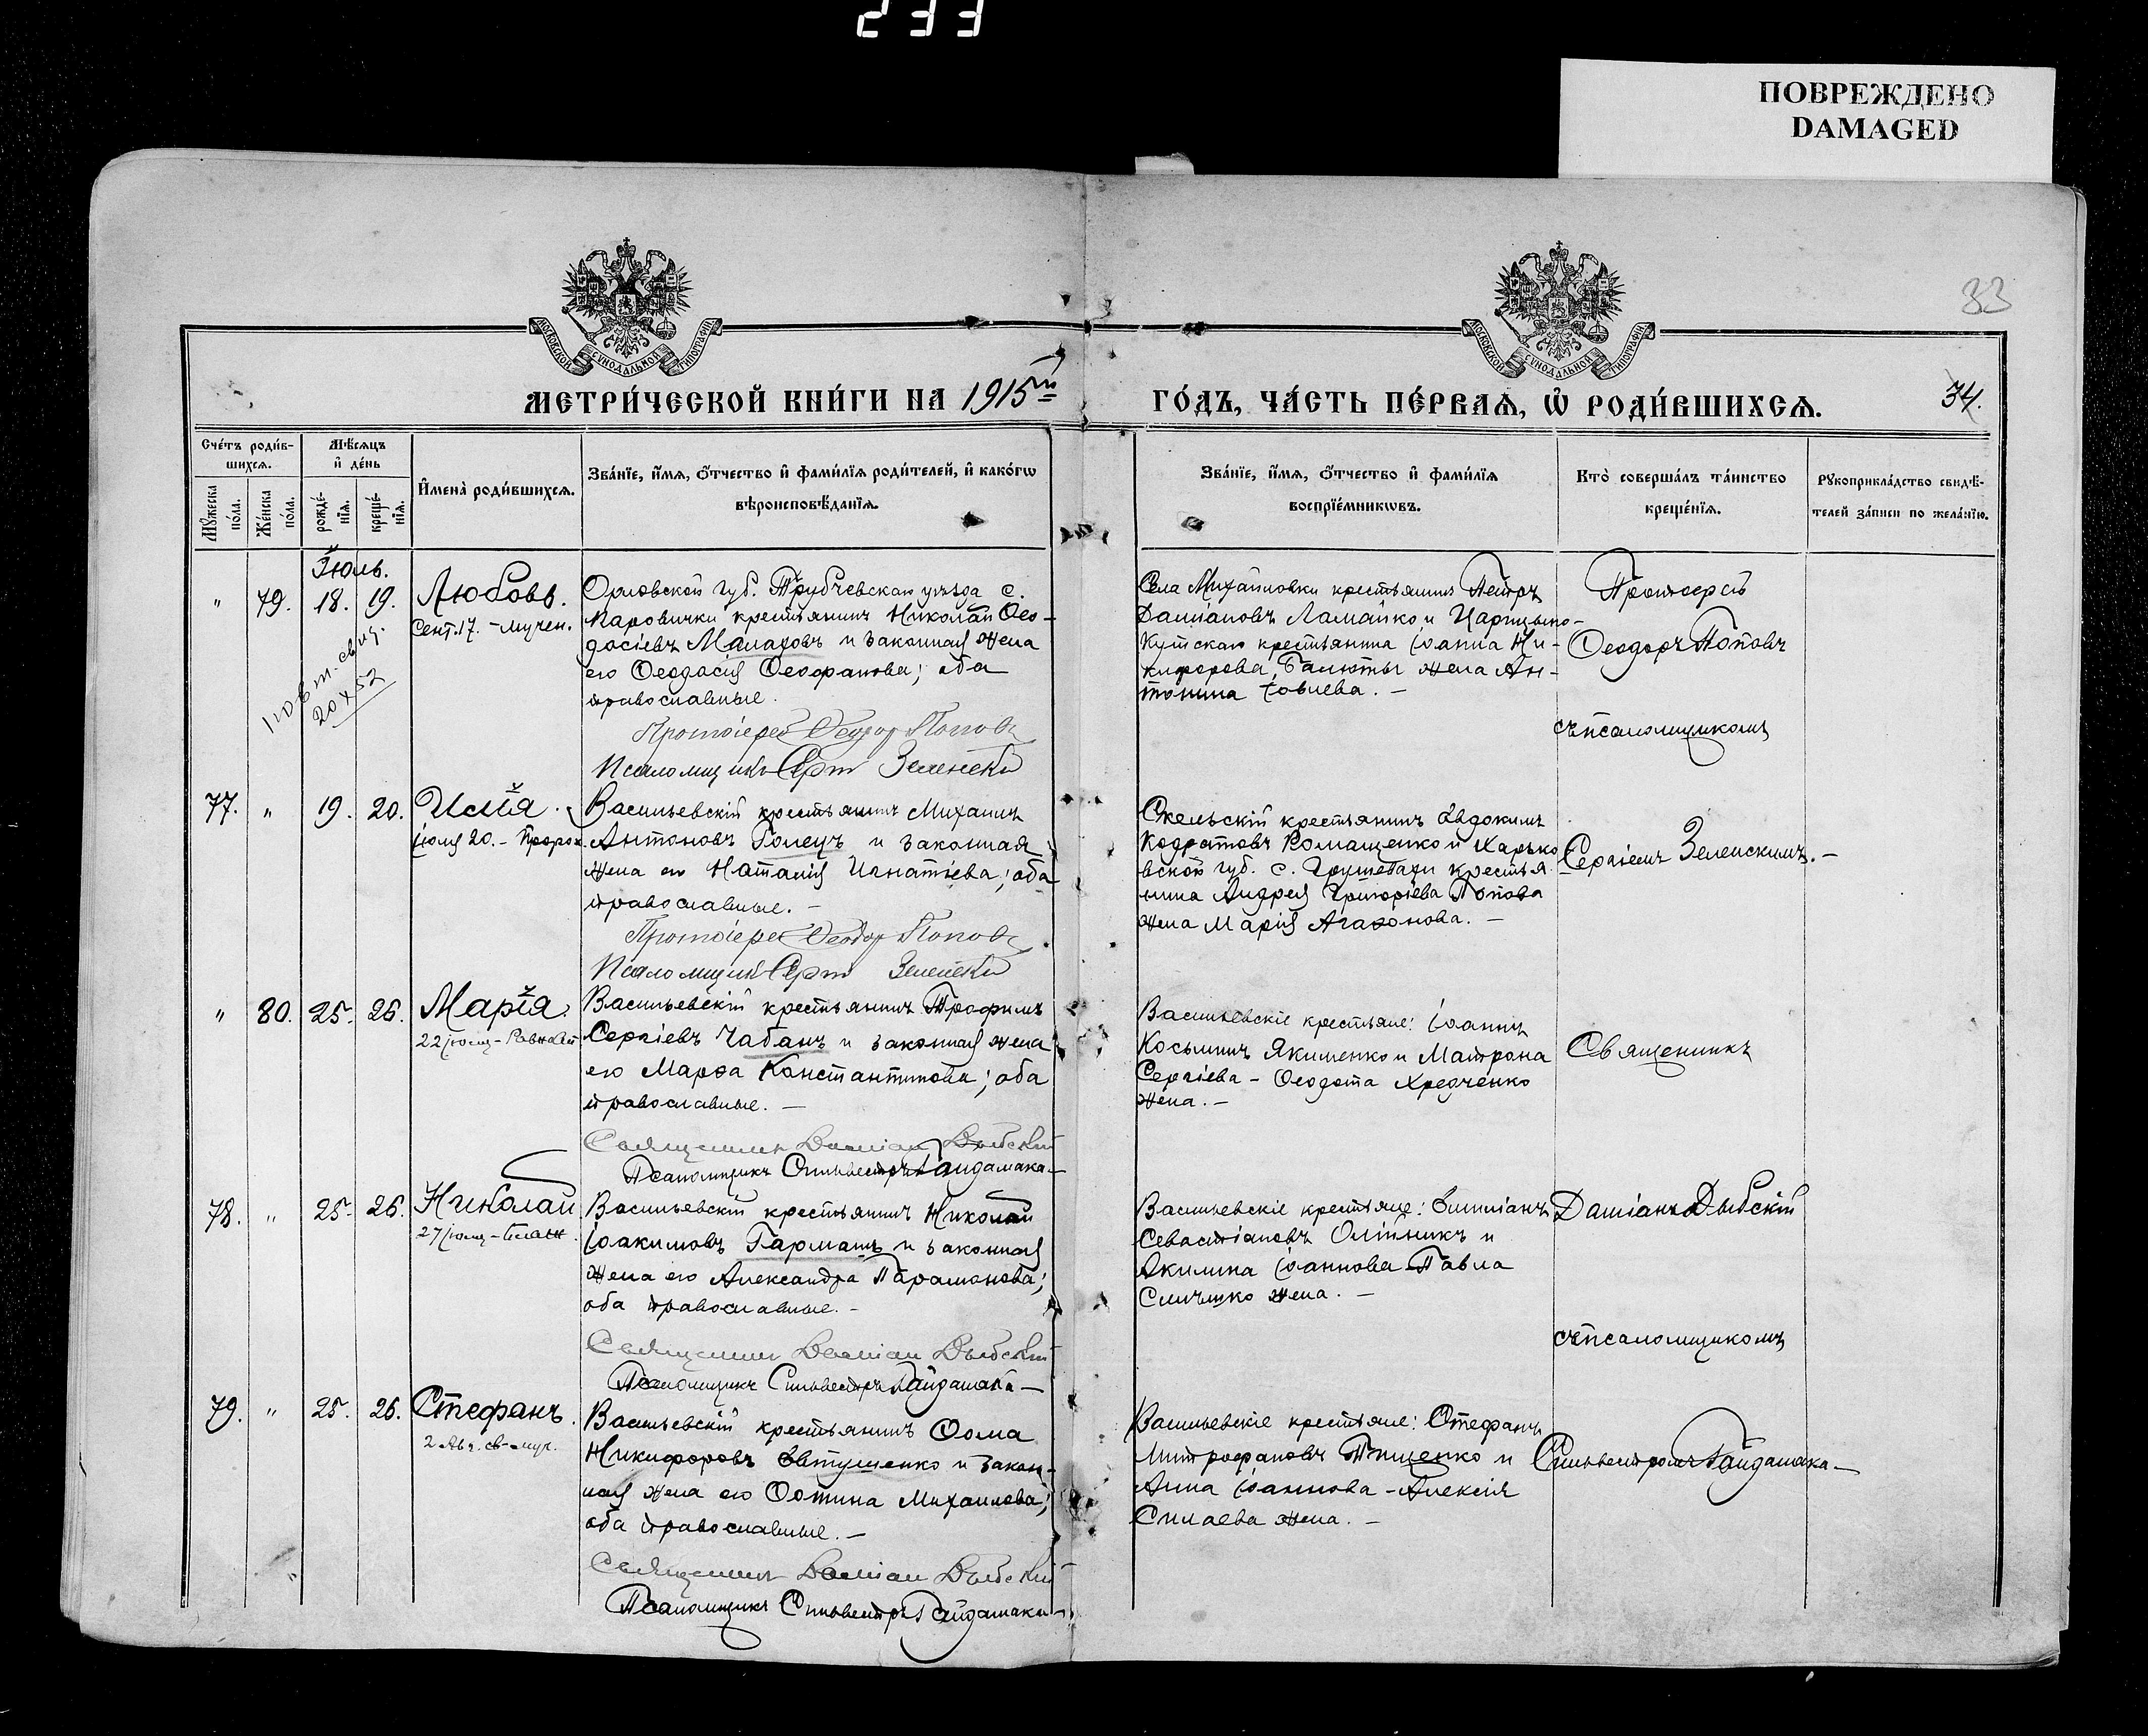 233
ПОВРЕЖДЕНО
DAMAGED
33
МОСКОВСКОЙ СѴНОДАЛЬНОЙ ТИПОГРАФІИ
МОСКОВСКОЙ СѴНОДАЛЬНОЙ ТИПОГРАФІИ
МЕТРИ́ЧЕСКОЙ КНИ́ГИ НА 1915й
ГО́ДЪ, ЧА́СТЬ ПЕ́РВАЯ, Ѡ҆ РОДИ́ВШИХСЯ.
34.
Сче́тъ роди́в-
шихся.
Мѣ́сяцъ
и҆ де́нь
И҆мена̀ роди́вшихся.
Зва́нїе, и҆́мя, ѻ҆́тчество и҆ фами́лїя роди́телей, и҆ како́гѡ
вѣроисповѣ́данїя.
Мꙋ́жеска
по́ла.
Же́нска
по́ла.
рожде́-
нїя.
креще́-
нїя.
Зва́нїе, и҆́мя, ѻ҆́тчество и҆ фами́лїя
воспрїе́мникѡвъ.
Кто̀ соверша́лъ та́инство
креще́нїя.
Рꙋкоприкла́дство свидѣ́-
телей за́писи по жела́нїю.
Іюль.
" 79. 18. 19. Любовь.
Сент. 17. - мучен.
20 X 52
Орловской губ. Трубчевскаго уѣзда с.
крестьянинъ Николай Ѳео-
досіевъ Малаховъ и законная жена
его Ѳеодосія Ѳеофанова; оба
православные.
Протоіерей Ѳеодор Попов
Псаломщикъ Серг Зеленскій
Села Михайловки крестьянинъ Петръ
Даміановъ Ламайко и Царицыно-
Кутскаго крестьянина Іоанна Ни-
кифорова Балюты жена Ан-
тонина Іовлева. -
Протоіерей
Ѳеодоръ Поповъ
съ псаломщикомъ
77. " 19. 20. Илія.
Іюля 20. - Пророк.
Васильевскій крестьянинъ Михаилъ
Антоновъ Голецъ и законная
жена его Наталія Игнатіева; оба
православные. -
Протоіерей Ѳеодор Попов
Псаломщикъ Серг Зеленскій
Скельскій крестьянинъ Евдокимъ
Кодратовъ Ромащенко и Харько
вской губ. с. крестья
нина Андрея Григоріева Попова
жена Марія Агафонова. -
Сергіемъ Зеленскимъ. -
" 80. 25. 26. Марія.
22 Іюля - Равноап
Васильевскій крестьянинъ Трофимъ
Сергіевъ Чабанъ и законная жена
его Марфа Константинова; оба
православные. -
Священникъ Даміан Дыбскій
Псаломщикъ Сильвестръ Гайдамака -
Васильевскіе крестьяне: Іоаннъ
Косьминъ Якименко и Матрона
Сергіева - Ѳеодота Хредченко
жена. -
Священникъ
78. " 25. 26. Николай
27 Іюля - Блаж.
Васильевскій крестьянинъ Николай
Іоакимовъ Гармашъ и законная
жена его Александра Парамонова;
оба православные. -
Священникъ Даміан Дыбскій
Псаломщикъ Сильвестръ Гайдамака -
Васильевскіе крестьяне: Емиліанъ
Севастіановъ Олійникъ и
Акилина Іоаннова Павла
жена. -
Даміанъ Дыбскій
съ псаломщикомъ
79. " 25. 26. Стефанъ.
2 Авг. св-муч.
Васильевскій крестьянинъ Ѳома
Никифоровъ Евтушенко и закон-
ная жена его Фотина Михаилова;
оба православные. -
Священникъ Даміан Дыбскій
Псаломщикъ Сильвестръ Гайдамака -
Васильевскіе крестьяне: Стефанъ
Митрофановъ Тищенко и
Анна Іоаннова - Алексія
Силаева жена. -
Сильвестромъ Гайдамака -